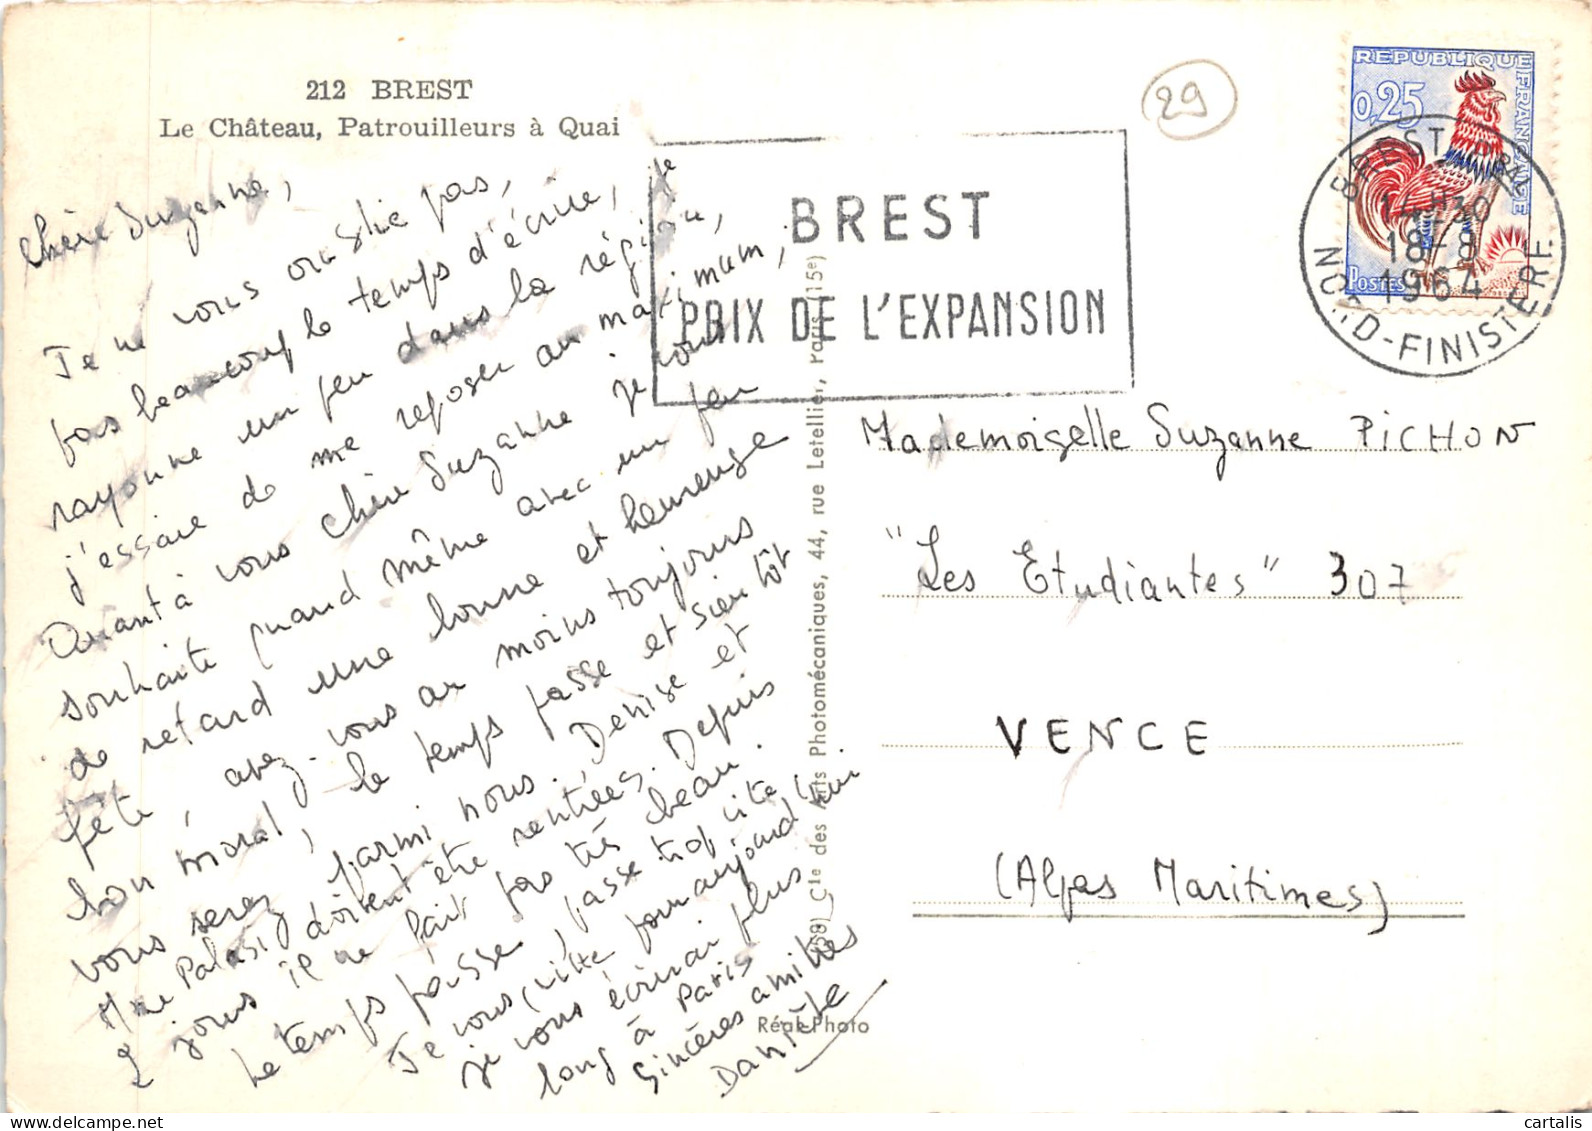 212 BREST
Le Château, Patrouilleurs à Quai
29
REPUBLIQUE FRANÇAISE
0,25
POSTES
BREST
14H30
18-8
1964
NORD-FINISTERE
BREST
PRIX DE L'EXPANSION
Chère Suzanne,
Je ne vous oublie pas,
pas beaucoup le temps d'écrire, je
rayonne un peu dans la région,
j'essaie de me reposer au maximum,
Quant à vous chère Suzanne je vous
souhaite quand même avec un peu
de retard une bonne et heureuse
fête, avez-vous au moins toujours
bon moral, le temps passe et bientôt
vous serez parmi nous. Denise et
Mme Palasi doivent être rentrées. Depuis
2 jours il ne fait pas très beau.
Le temps passe, passe trop vite
Je vous quitte pour aujourd'hui
je vous écrirai plus
long à Paris
Sincères amitiés
Danièle
Cie des Arts Photomécaniques, 44, rue Letellier, Paris (15e)
Réal-Photo
Mademoiselle Suzanne PICHON
"Les Etudiantes" 307
VENCE
(Alpes Maritimes)
cartalis